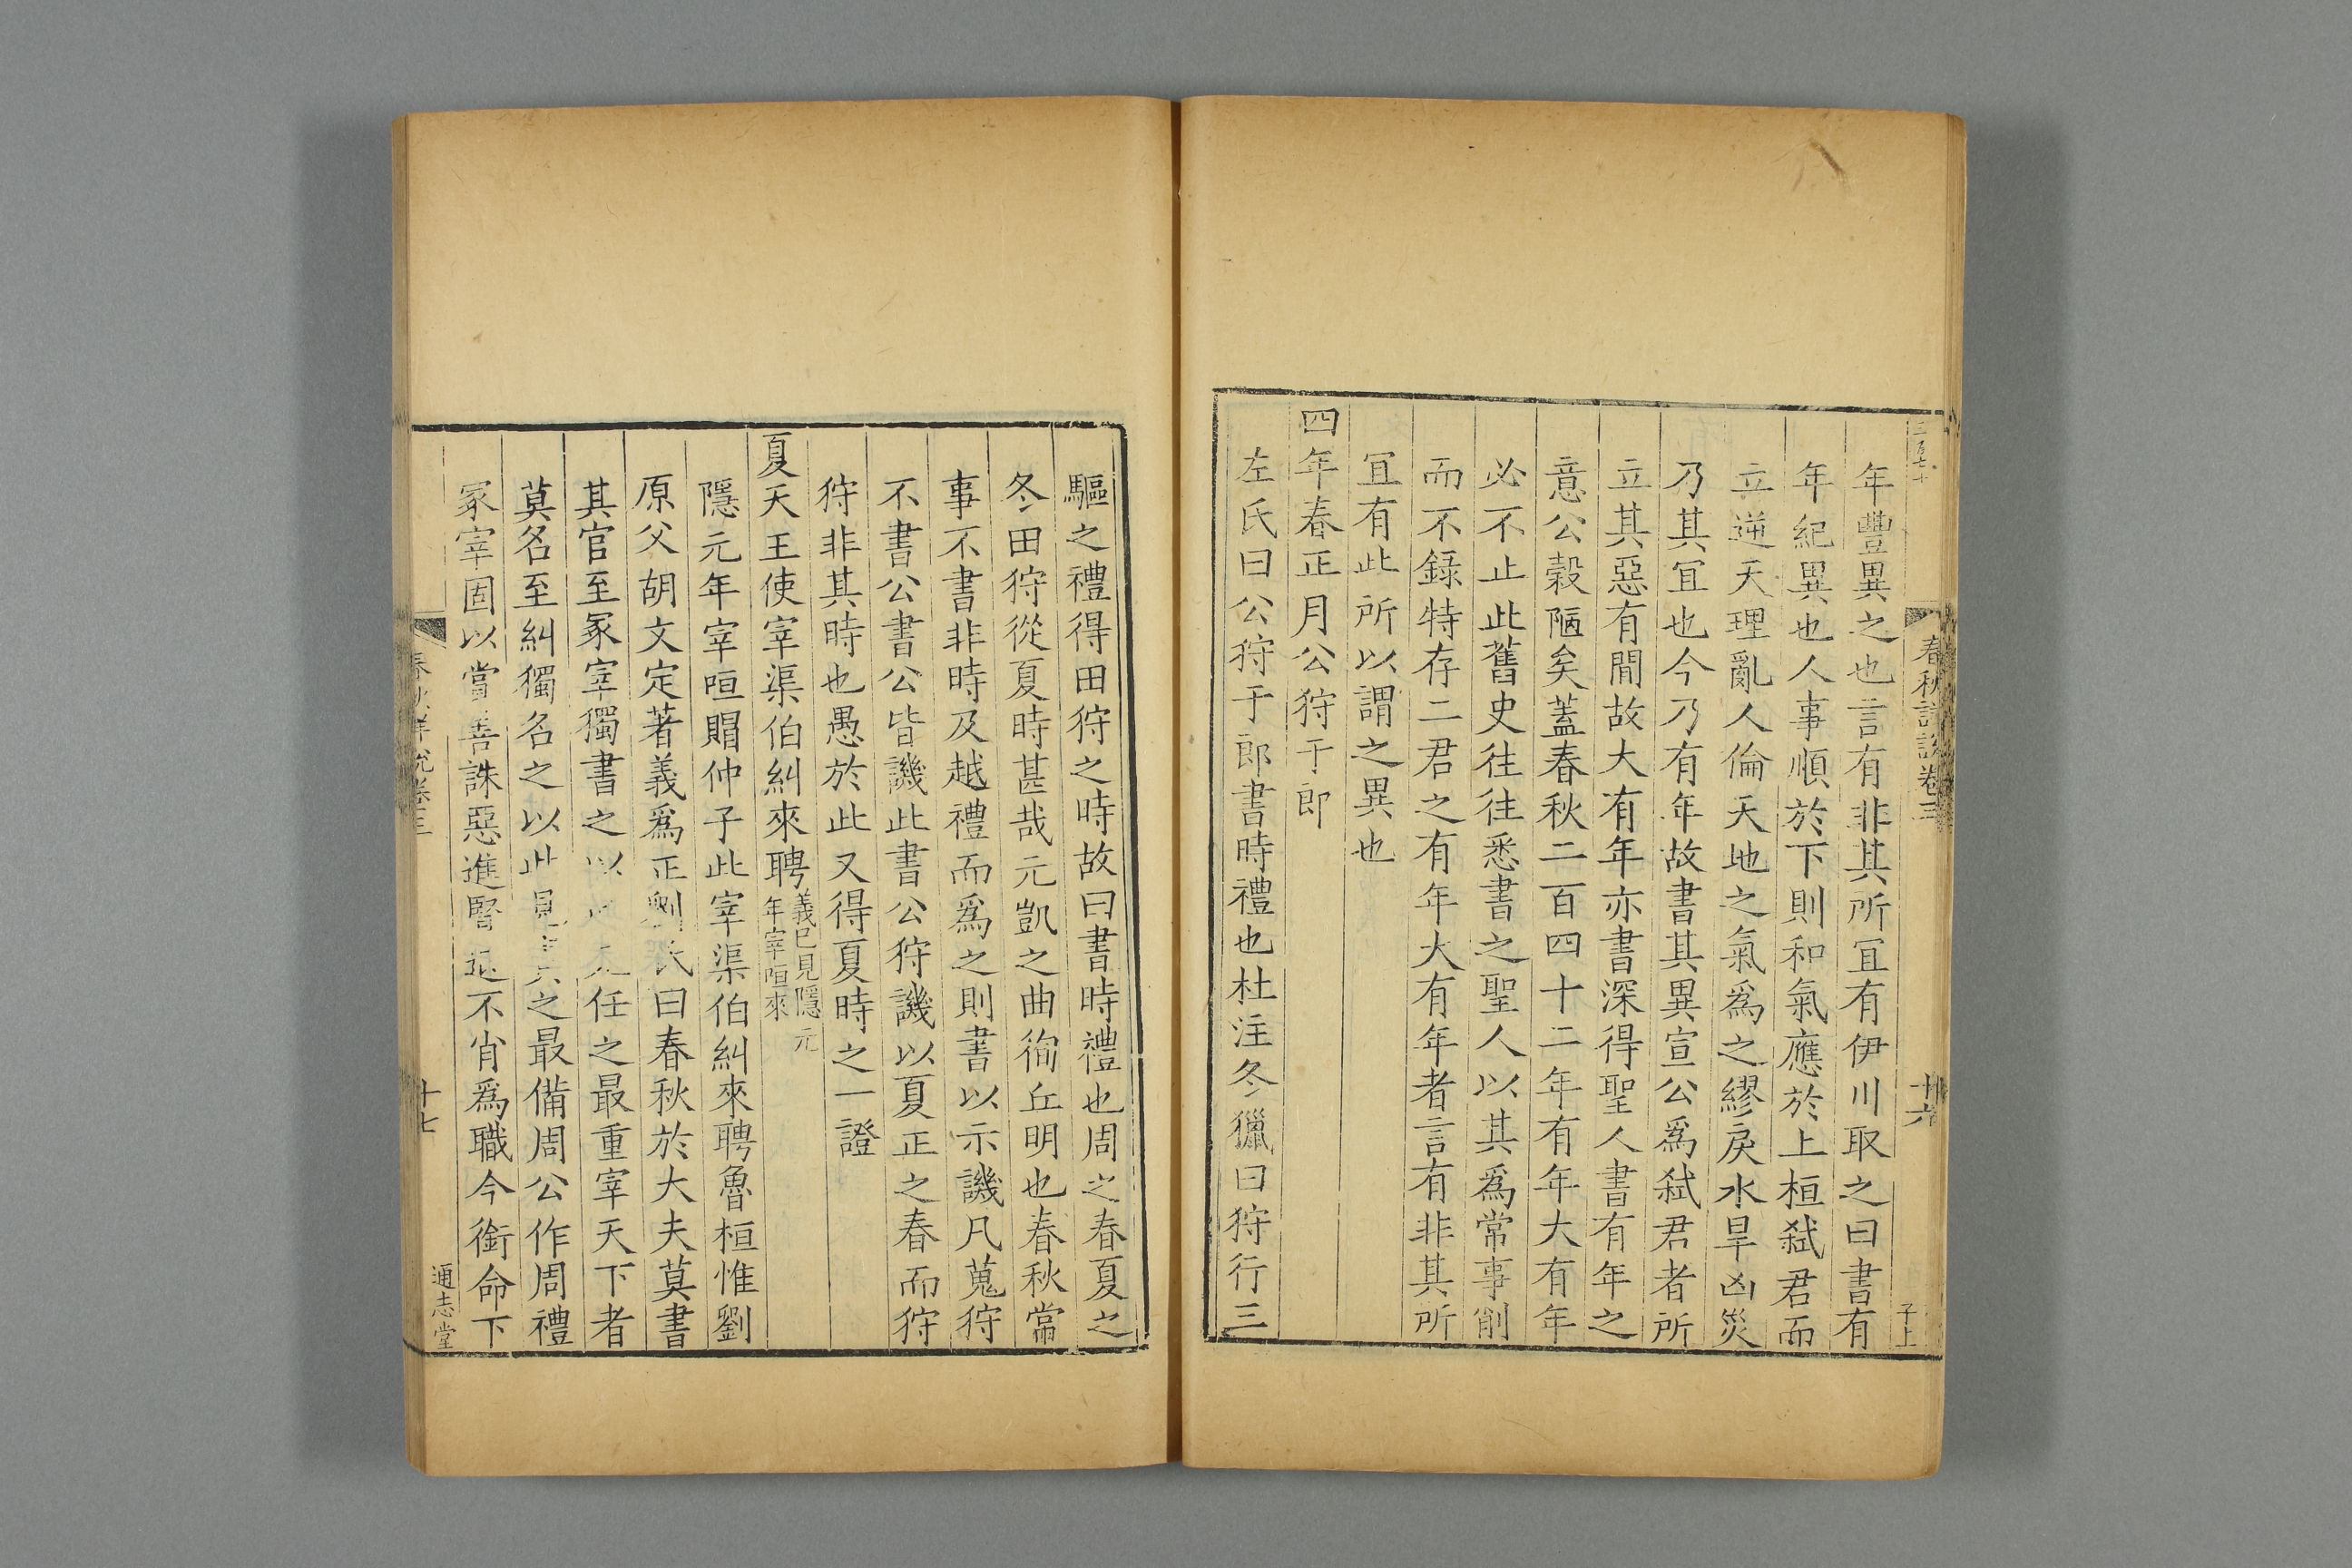 春秋詳說卷三
十六
子上
年豐異之也言有非其所冝有伊川取之曰書有
年紀異也人事順於下則和氣應於上桓弑君而
立逆天理亂人倫天地之氣爲之繆戾水旱凶災
乃其冝也今乃有年故書其異宣公爲弑君者所
立其惡有間故大有年亦書深得聖人書有年之
意公穀陋矣蓋春秋二百四十二年有年大有年
必不止此舊史往往悉書之聖人以其爲常事削
而不錄特存二君之有年大有年者言有非其所
冝有此所以謂之異也
四年春正月公狩于郎
左氏曰公狩于郎書時禮也杜注冬獵曰狩行三
驅之禮得田狩之時故曰書時禮也周之春夏之
冬田狩從夏時甚哉元凱之曲徇丘明也春秋常
事不書非時及越禮而爲之則書以示譏凡蒐狩
不書公書公皆譏此書公狩譏以夏正之春而狩
狩非其時也愚於此又得夏時之一證
夏天王使宰渠伯糾來聘義已見隱元年宰咺來
隱元年宰咺賵仲子此宰渠伯糾來聘魯桓惟劉
原父胡文定著義爲正劉氏曰春秋於大夫莫書
其官至冢宰獨書之以任之最重宰天下者
莫名至糾獨名之以此見之最備周公作周禮
冢宰固以賞善誅惡進賢退不肖爲職今銜命下
春秋詳說卷三
十七
通志堂